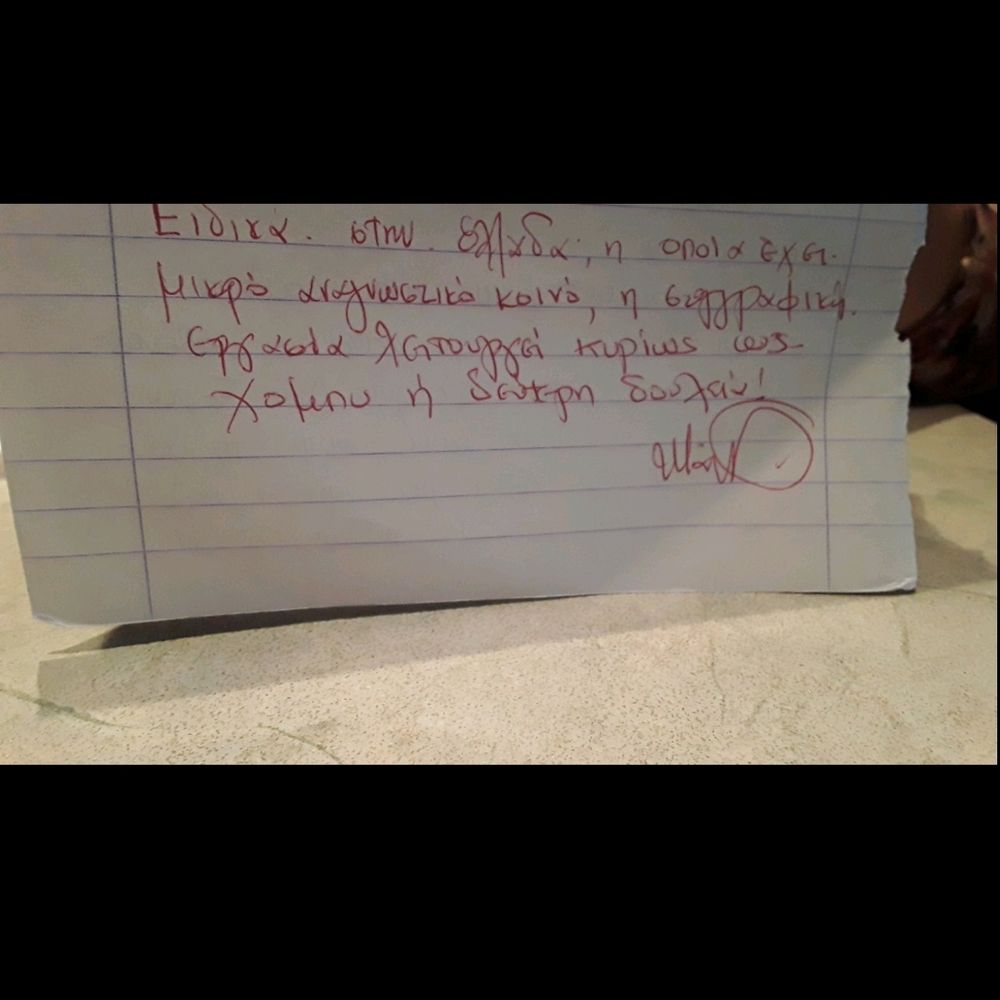 Ειδικά. στην. Ελλάδα, η οποία έχει.
μικρό αναγνωστικό κοινό, η συγγραφική.
εργασία λειτουργεί κυρίως ως
χόμπυ ή δεύτερη δουλειά!